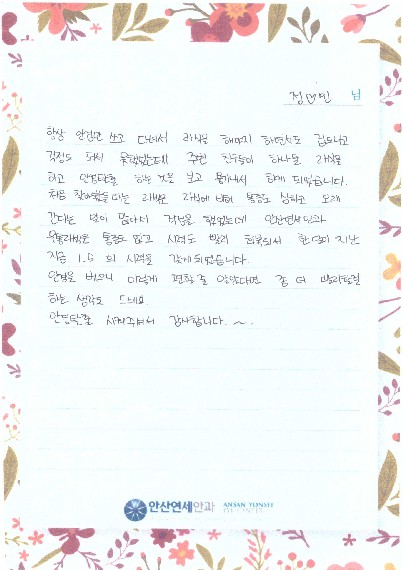 정 민 님
항상 안경만 쓰고 다녀서 라식을 해야지 하면서도 겁도나고
걱정도 되서 못했었는데 주변 친구들이 하나둘 라식을
하고 안경탈출 하는 것을 보고 용기내서 하게 되었습니다.
처음 찾아봤을때는 라섹은 라식에 비해 통증도 심하고 오래
간다는 말이 많아서 걱정을 했었는데 안산연세안과
무통라섹은 통증도 없고 시력도 빨리 회복되서 한달이 지난
지금 1.5 의 시력을 갖게되었습니다.
안경을 벗으니 이렇게 편한 줄 알았다면 좀 더 빨리할걸
하는 생각도 드네요
안경탈출 시켜주셔서 감사합니다. ~.
안산연세안과 ANSAN YONSEI
EYE CENTER